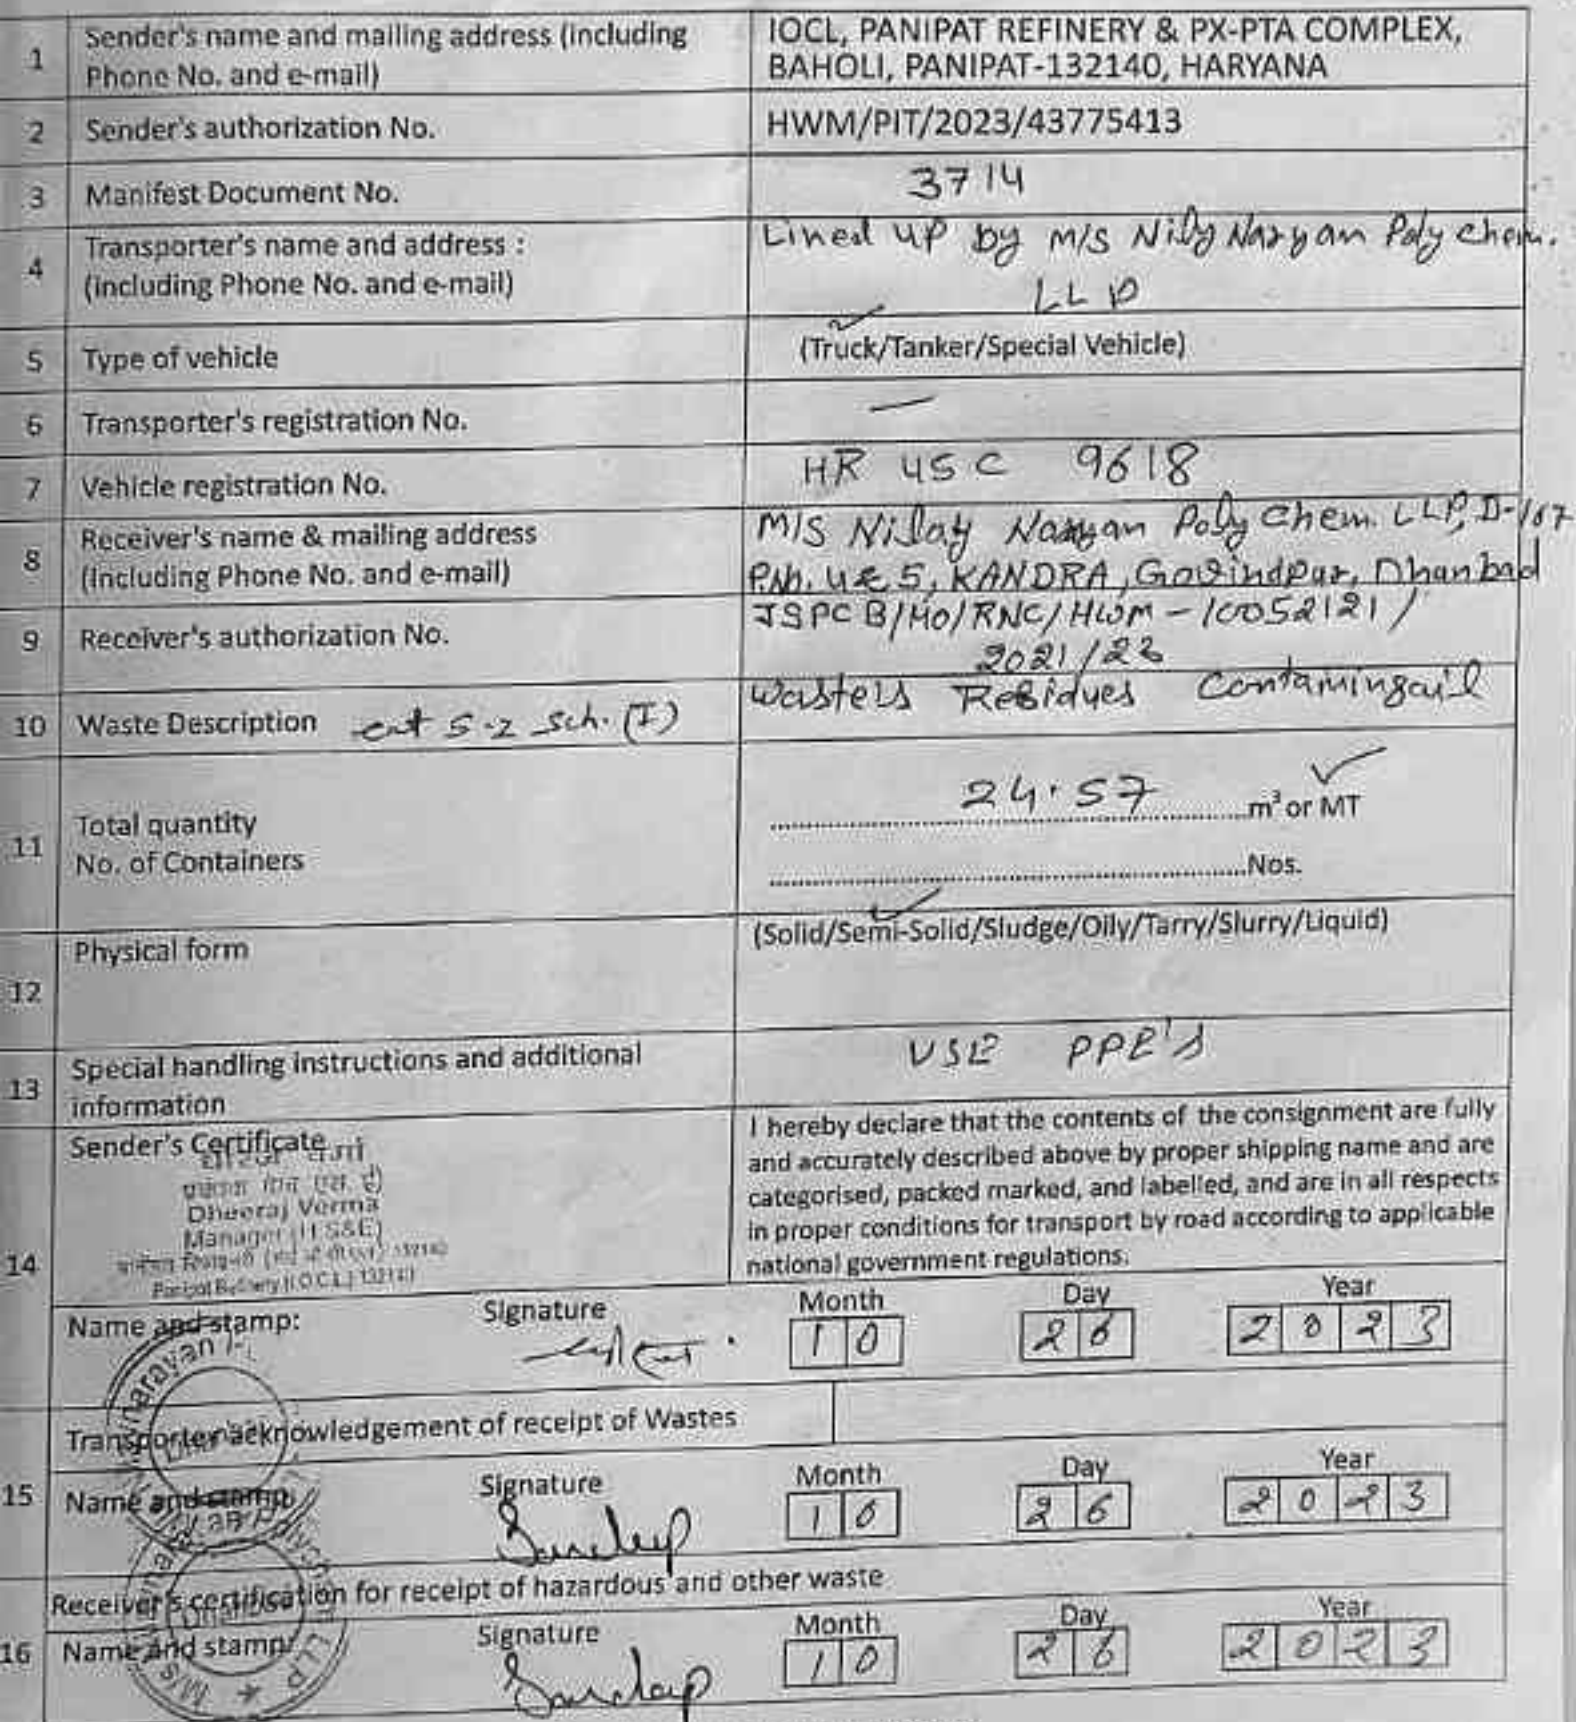 1 Sender's name and mailing address (including Phone No. and e-mail)
IOCL, PANIPAT REFINERY & PX-PTA COMPLEX,
BAHOLI, PANIPAT-132140, HARYANA
2 Sender's authorization No.
HWM/PIT/2023/43775413
3 Manifest Document No.
3714
4 Transporter's name and address :
(including Phone No. and e-mail)
Lined up by M/S Nily Naryan Poly chem.
LLP
5 Type of vehicle
(Truck/Tanker/Special Vehicle)
6 Transporter's registration No.
—
7 Vehicle registration No.
HR 45 C 9618
8 Receiver's name & mailing address
(Including Phone No. and e-mail)
M/S Nilay Narayan Poly Chem. LLP, D-107
P.No. 4 & 5, KANDRA, Govindpur, Dhanbad
9 Receiver's authorization No.
JSPCB/HO/RNC/HWM-10052121/
2021/23
10 Waste Description cat 5.2 Sch. (I)
Wastels Residues Containingoil
11 Total quantity
No. of Containers
24.57 m³ or MT
Nos.
12 Physical form
(Solid/Semi-Solid/Sludge/Oily/Tarry/Slurry/Liquid)
13 Special handling instructions and additional
information
USE PPE's
14 Sender's Certificate
Dheeraj Verma
Manager (HS&E)
Panipat Refinery (I.O.C.L.) 132140
I hereby declare that the contents of the consignment are fully
and accurately described above by proper shipping name and are
categorised, packed marked, and labelled, and are in all respects
in proper conditions for transport by road according to applicable
national government regulations.
Name and stamp: Signature Month Day Year
10 26 2023
Transporter acknowledgement of receipt of Wastes
15 Name and stamp Signature Month Day Year
Sandeep 10 26 2023
Receiver's certification for receipt of hazardous and other waste
16 Name and stamp Signature Month Day Year
Sandeep 10 26 2023